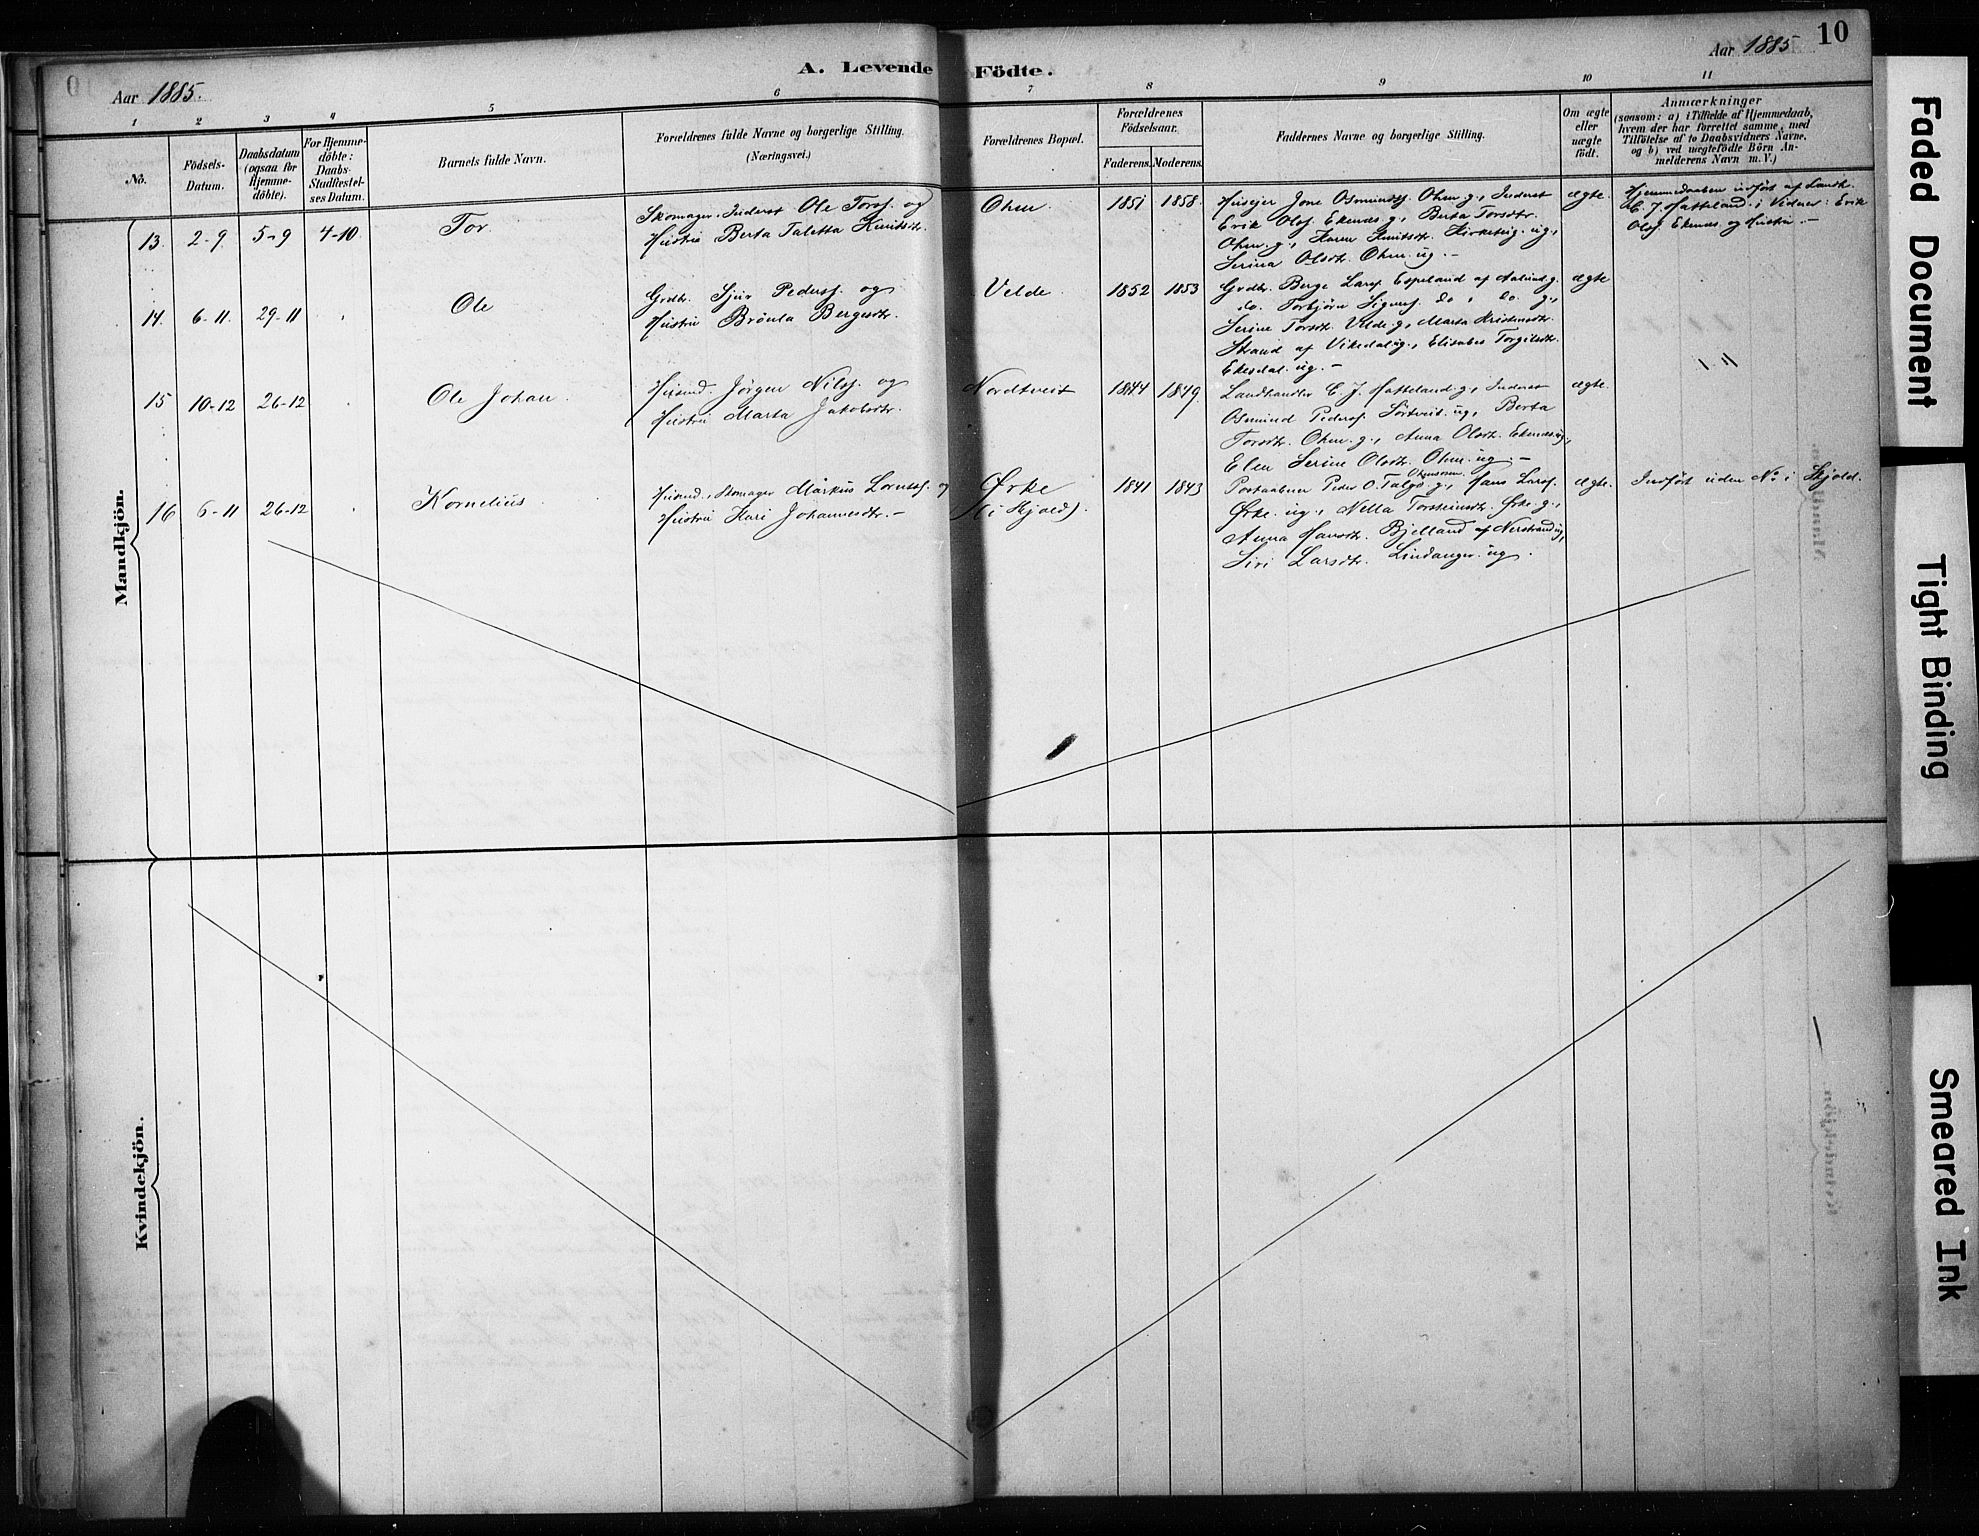 Aar 1885.
A. Levende Födte.
Aar 1885
10
1 2 3 4 5 6 7 8 9 10 11
No.
Födsels-
Datum.
Daabsdatum
(ogsaa for
Hjemme-
döbte).
For Hjemme-
döbte:
Daabs-
Stadfæstel-
ses Datum.
Barnets fulde Navn.
Forældrenes fulde Navne og borgerlige Stilling.
(Næringsvei.)
Forældrenes Bopæl.
Forældrenes
Födselsaar.
Faderens.
Moderens.
Faddernes Navne og borgerlige Stilling.
Om ægte
eller
uægte
født.
Anmærkninger
(saasom: a) i Tilfælde af Hjemmedaab,
hvem der har forrettet samme, med
Tilföielse af to Daabsvidners Navne,
og b) ved uægtefödte Börn An-
melderens Navn m. V.)
Mandkjön.
13. 2-9 5-9 4-10. Tor.
Skomager, Inderst Ole Torss. og
Hustru Berta Taletta Knutsdtr.
Ohm. 1851 1858.
Husejer Jone Osmundss. Ohm. g., Inderst
Erik Olss. Ekenes g., Berta Torsdtr.
Ohm. g., Karen Knutsdtr. Kirketeig. ug.,
Serina Olsdtr. Ohm. ug. –
ægte.
Hjemmedaaben udført af Landh.
E. J. Hatteland. i Vidner: Erik
Olss. Ekenes og Hustru. –
14. 6-11. 29-11 Ole
Grdbr. Sjur Pederss. og
Hustru Brönla Bergesdtr.
Velde. 1852 1853
Grdbr. Berge Larss. Espeland af
do. Torbjörn do. do g.,
Serine Torsdtr. Velde g., Marta Kristensdtr.
Strand af Vikedal ug., Elisabet Torgilsdtr.
Ekesdal. ug. –
ægte
15 10-12 26-12 Ole Johan.
Husmd. Jörgen Nilss. og
Hustru Marta Jakobsdtr.
Nordtveit 1844 1849.
Landhandler E. J. Hatteland. g., Inderst
Osmund Pederss. Sörtveit. ug., Berta
Torsdtr. Ohm. g., Anna Olsdtr. Ekenes ug.,
Elen Serine Olsdtr. Ohm. ug. –
ægte.
16 6-11 26-12 Kornelius.
Husmd., Skomager Márkus Lorntss. og
Hustru Kari Johannesdtr. –
Ørke
(i Skjold). 1841 1843
Postaabner Peder O. Talgö. g., Hans Larss.
Ørke. ug., Nella Torsteinsdtr. Ørke g.,
Anna Hansdtr. Bjelland af Nerstrand ug.,
Siri Larsdtr. Lindanger. ug.
ægte.
Indført uden No i Skjold.
Kvindekjön.
Faded Document
Tight Binding
Smeared Ink